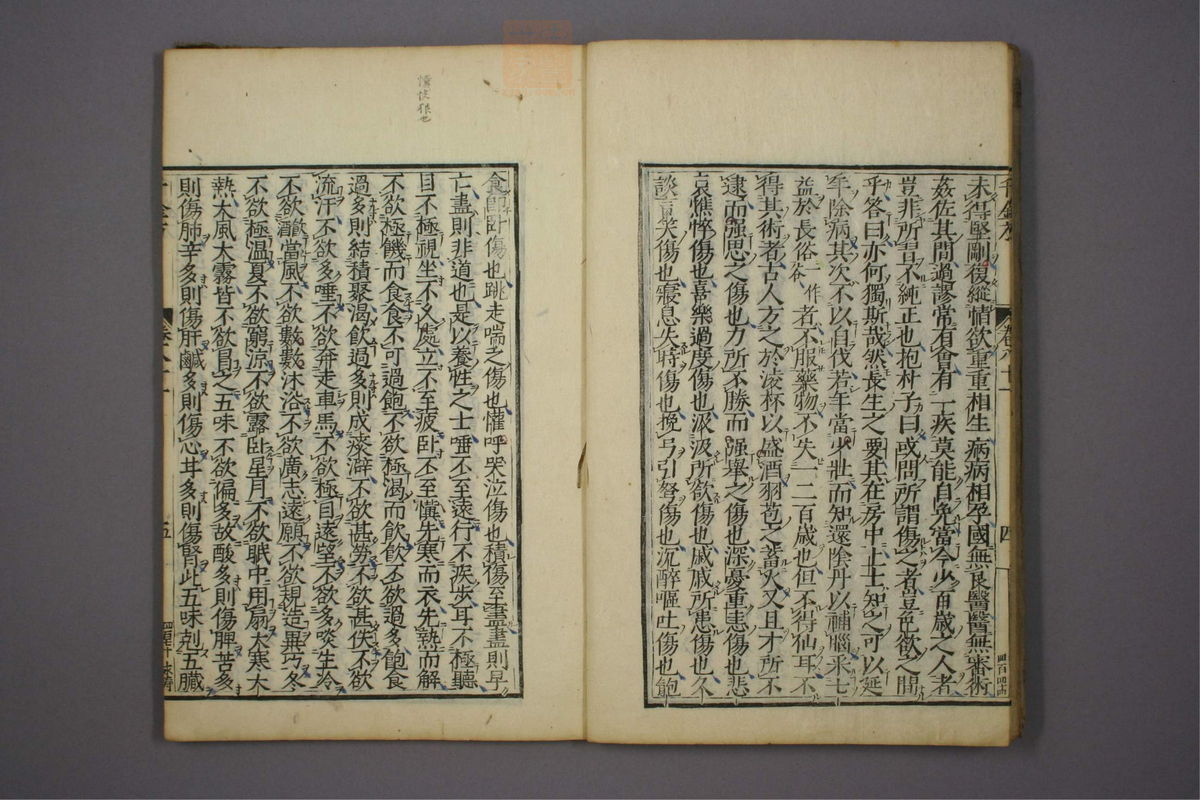 未得堅剛復縱情欲重重相生病病相孕國無良醫醫無審術
姦佐其間過謬常有會有一疾莫能自免當今少百歲之人者
豈非所習不純正也抱朴子曰或問所謂傷之者豈色欲之間
乎答曰亦何獨斯哉然長生之要其在房中上士知之可以延
年除病其次不以自伐若年當少壯而知還陰丹以補腦采七
益於長俗一作谷者不服藥物不失一二百歲也但不得仙耳不
得其術者古人方之於凌杯以盛湯羽苞之蓄火又且才所不
逮而强思之傷也力所不勝而强舉之傷也深憂重恚傷也悲
哀憔悴傷也喜樂過度傷也汲汲所欲傷也戚戚所患傷也久
談言笑傷也寢息失時傷也挽弓引弩傷也沉醉嘔吐傷也飽
食即卧傷也跳走喘乏傷也懽呼哭泣傷也積傷至盡盡則早
亡盡則非道也是以養性之士唾不至遠行不疾步耳不極聽
目不極視坐不久處立不至疲卧不至懻先寒而衣先熱而解
不欲極饑而食食不可過飽不欲極渴而飲飲不欲過多飽食
過多則結積聚渴飲過多則成痰澼不欲甚勞不欲甚佚不欲
流汗不欲多唾不欲奔走車馬不欲極目遠望不欲多啖生冷
不欲飲酒當風不欲數數沐浴不欲廣志遠願不欲規造異巧冬
不欲極温夏不欲窮凉不欲露卧星月不欲眠中用扇大寒大
熱大風大霧皆不欲冒之五味不欲偏多故酸多則傷脾苦多
則傷肺辛多則傷肝鹹多則傷心甘多則傷腎此五味剋五臟